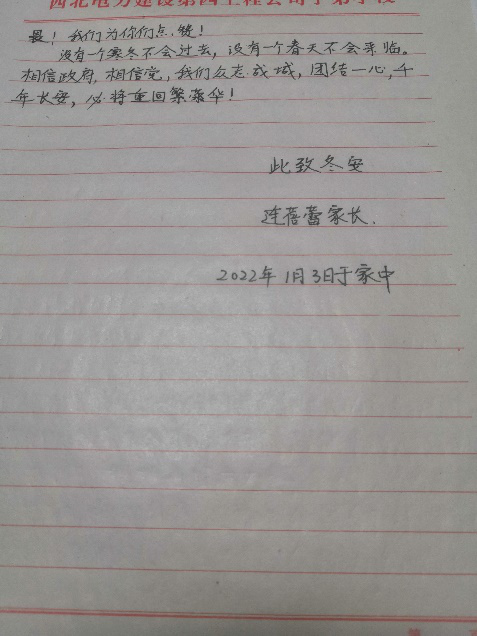 西北电力建设第四工程公司子弟学校
最！我们为你们点赞！
没有一个寒冬不会过去，没有一个春天不会来临。
相信政府，相信党，我们众志成城，团结一心，千
年长安，必将重回繁荣华！
此致冬安
连蓓蕾家长.
2022年1月3日于家中